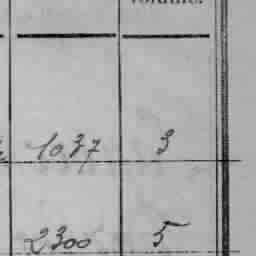 volume.
1037 3
2300 5